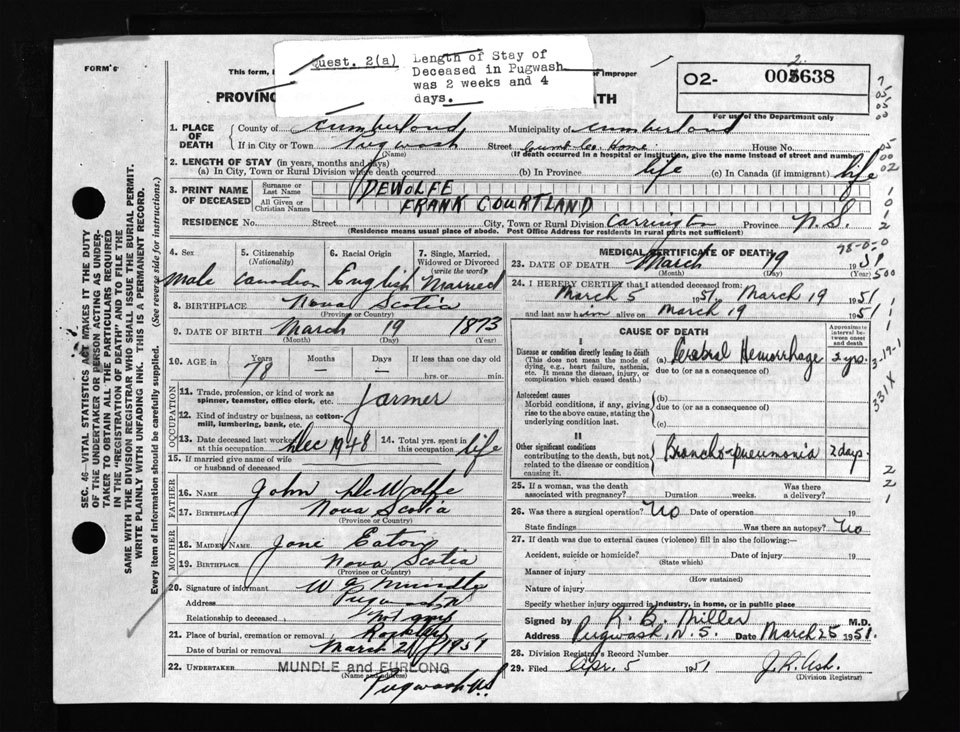 FORM 6
This form,
improper
Quest. 2(a) Length of Stay of
Deceased in Pugwash
was 2 weeks and 4
days.
O2- 005638
2
For use of the Department only
PROVINC
DEATH
1. PLACE OF DEATH
County of Cumberland Municipality of Cumberland
If in City or Town Pugwash Street Cumb Co. Home House No.
(Name) (If death occurred in a hospital or institution, give the name instead of street and number)
2. LENGTH OF STAY (in years, months and days)
(a) In City, Town or Rural Division where death occurred (b) In Province life (c) In Canada (if immigrant) life
3. PRINT NAME OF DECEASED
Surname or Last Name DEWOLFE
All Given or Christian Names FRANK COURTLAND
RESIDENCE No. Street City, Town or Rural Division Carrington Province N.S.
(Residence means usual place of abode. Post Office Address for residents in rural parts not sufficient)
4. Sex 5. Citizenship (Nationality) 6. Racial Origin 7. Single, Married, Widowed or Divorced (write the word)
male Canadian English Married
8. BIRTHPLACE Nova Scotia
(Province or Country)
9. DATE OF BIRTH March 19 1873
(Month) (Day) (Year)
10. AGE in Years Months Days If less than one day old
78 — — hrs. or min.
OCCUPATION
11. Trade, profession, or kind of work as spinner, teamster, office clerk, etc. farmer
12. Kind of industry or business, as cotton-mill, lumbering, bank, etc.
13. Date deceased last worked at this occupation Dec 1948 14. Total yrs. spent in this occupation life
15. If married give name of wife or husband of deceased
FATHER
16. NAME John DeWolfe
17. BIRTHPLACE Nova Scotia
(Province or Country)
MOTHER
18. MAIDEN NAME Jane Eaton
19. BIRTHPLACE Nova Scotia
(Province or Country)
20. Signature of informant W a Mundle
Address Pugwash
Relationship to deceased not any
21. Place of burial, cremation or removal Rockley
Date of burial or removal March 21 1951
22. UNDERTAKER MUNDLE and FURLONG
(Name and Address)
Pugwash N.S
MEDICAL CERTIFICATE OF DEATH
78-0-0
23. DATE OF DEATH March 19 1951
(Month) (Day) (Year)
500
24. I HEREBY CERTIFY that I attended deceased from:
March 5 1951, March 19 1951
and last saw him alive on March 19 1951
CAUSE OF DEATH
Approximate interval between onset and death
I
Disease or condition directly leading to death (a) Cerebral Hemorrhage 2 yrs.
(This does not mean the mode of dying, e.g., heart failure, asthenia, etc. It means the disease, injury, or complication which caused death.)
due to (or as a consequence of)
Antecedent causes (b)
Morbid conditions, if any, giving rise to the above cause, stating the underlying condition last.
due to (or as a consequence of)
(c)
II
Other significant conditions contributing to the death, but not related to the disease or condition causing it.
Broncho-pneumonia 2 days
3-19-1
331X
25. If a woman, was the death associated with pregnancy? Duration weeks. Was there a delivery?
26. Was there a surgical operation? No Date of operation 19
State findings Was there an autopsy? No
27. If death was due to external causes (violence) fill in also the following:—
Accident, suicide or homicide? Date of injury 19
(State which)
Manner of injury
(How sustained)
Nature of injury
Specify whether injury occurred in industry, in home, or in public place
Signed by K. B. Miller M.D.
Address Pugwash, N.S. Date March 25 1951.
28. Division Registrar's Record Number
29. Filed Apr. 5 1951 J.R. Ash.
(Division Registrar)
SEC. 46—VITAL STATISTICS ACT MAKES IT THE DUTY
OF THE UNDERTAKER OR PERSON ACTING AS UNDER-
TAKER TO OBTAIN ALL THE PARTICULARS REQUIRED
IN THE "REGISTRATION OF DEATH" AND TO FILE THE
SAME WITH THE DIVISION REGISTRAR WHO SHALL ISSUE THE BURIAL PERMIT.
WRITE PLAINLY WITH UNFADING INK. THIS IS A PERMANENT RECORD.
Every item of information should be carefully supplied. (See reverse side for instructions.)